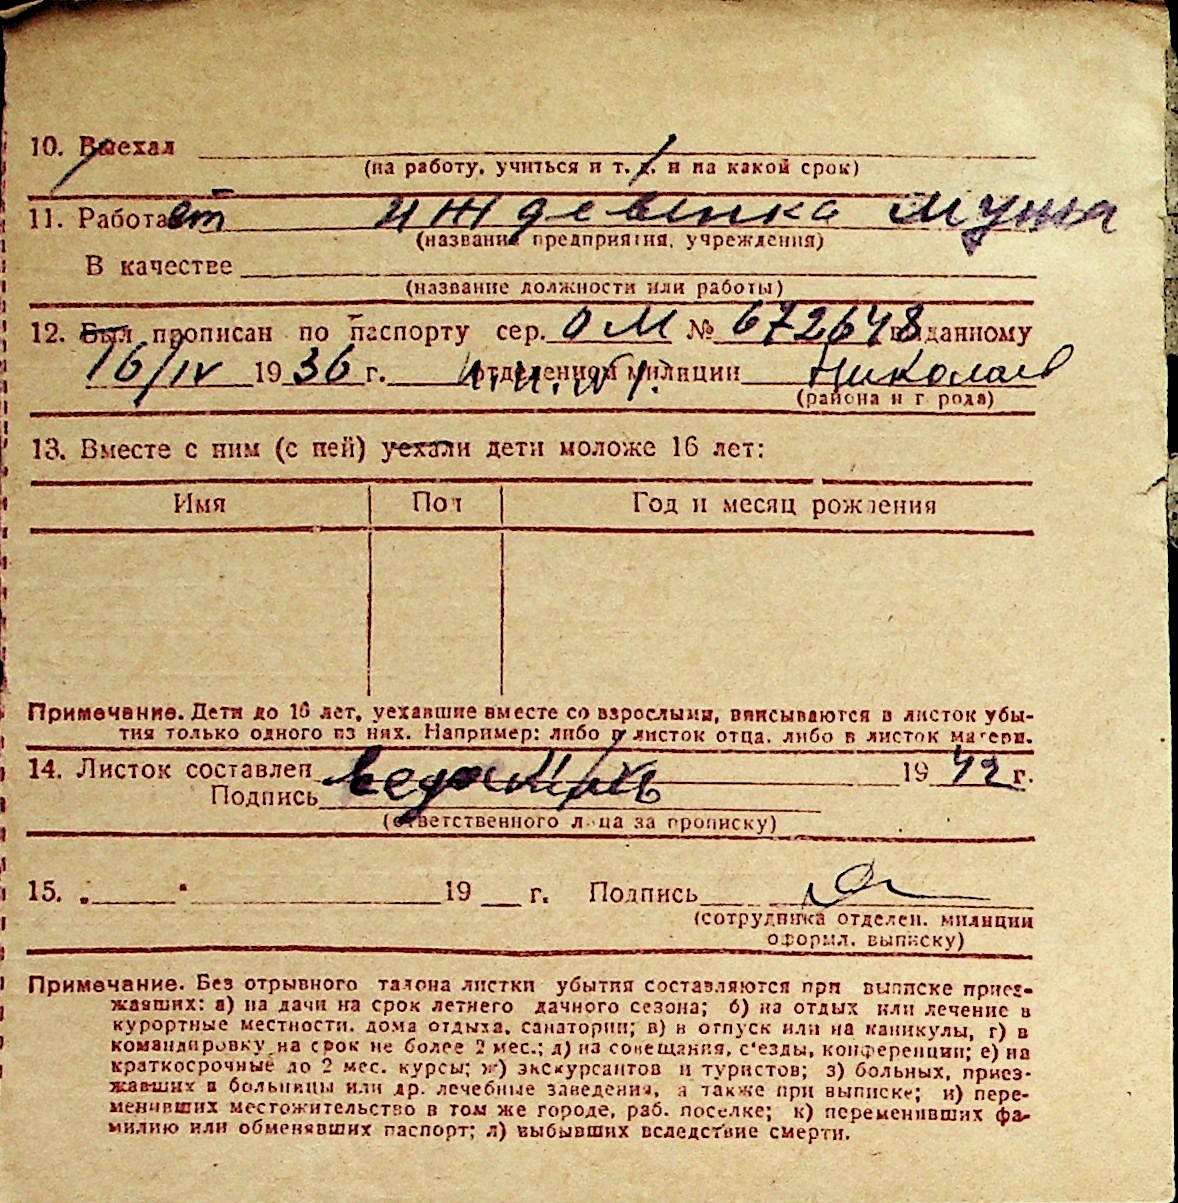 10. Выехал
(на работу, учиться и т. д. и на какой срок)
11. Работает иждевенка мужа
(название предприятия, учреждения)
В качестве
(название должности или работы)
12. Был прописан по паспорту сер. ОМ № 672648 выданному
16/IV 1936 г. отделением милиции Николаев
(района и города)
13. Вместе с ним (с ней) уехали дети моложе 16 лет:
Имя Пол Год и месяц рождения
Примечание. Дети до 16 лет, уехавшие вместе со взрослыми, вписываются в листок убы-
тия только одного из них. Например: либо в листок отца, либо в листок матери.
14. Листок составлен 1942 г.
Подпись
(ответственного лица за прописку)
15. „ " 19 г. Подпись
(сотрудника отделен. милиции
оформл. выписку)
Примечание. Без отрывного талона листки убытия составляются при выписке приез-
жавших: а) на дачи на срок летнего дачного сезона; б) на отдых или лечение в
курортные местности, дома отдыха, санатории; в) в отпуск или на каникулы, г) в
командировку на срок не более 2 мес.; д) на совещания, с'езды, конференции; е) на
краткосрочные до 2 мес. курсы; ж) экскурсантов и туристов; з) больных, приез-
жавших в больницы или др. лечебные заведения, а также при выписке; и) пере-
менивших местожительство в том же городе, раб. поселке; к) переменивших фа-
милию или обменявших паспорт; л) выбывших вследствие смерти.